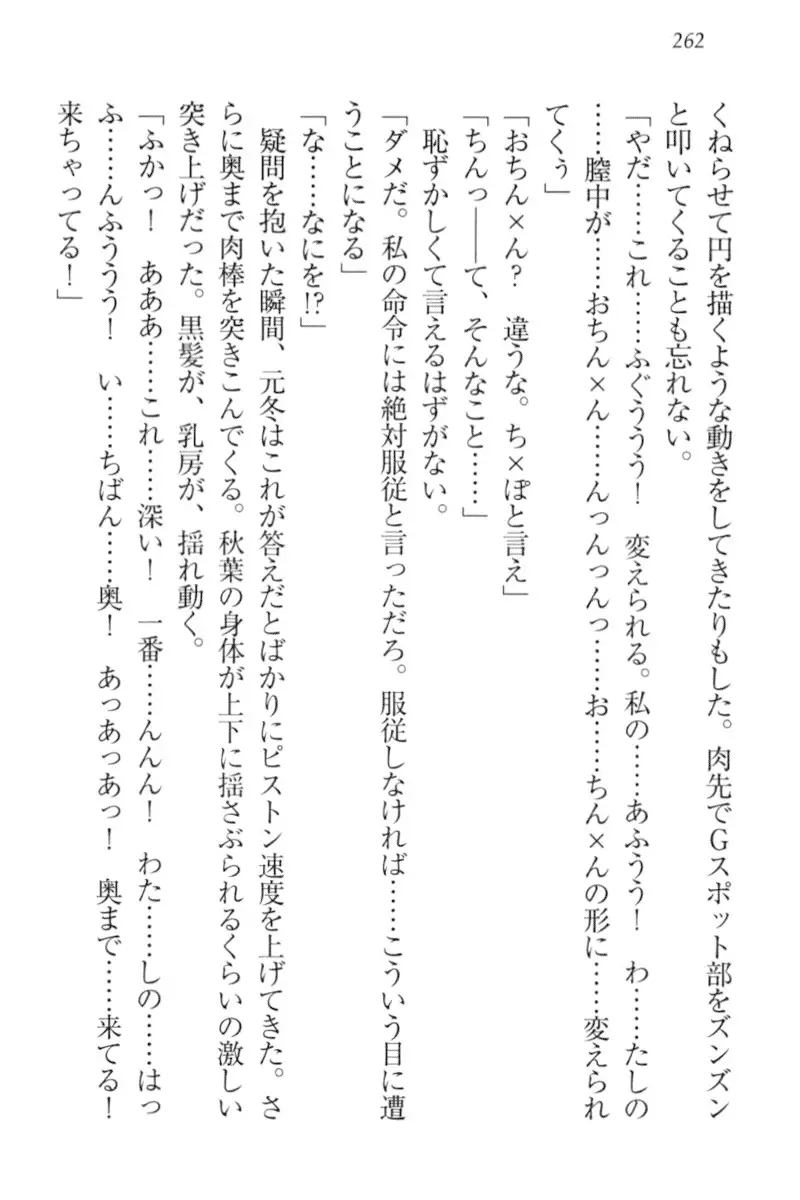 262
くねらせて円を描くような動きをしてきたりもした。肉先でGスポット部をズンズン
と叩いてくることも忘れない。
「やだ……これ……ふぐううう！　変えられる。私の……あふうう！　わ……たしの
……膣中が……おちん×ん……んっんっんっ……お……ちん×んの形に……変えられ
てくぅ」
「おちん×ん？　違うな。ち×ぽと言え」
「ちんっ――て、そんなこと……」
恥ずかしくて言えるはずがない。
「ダメだ。私の命令には絶対服従と言っただろ。服従しなければ……こういう目に遭
うことになる」
「な……なにを!?」
疑問を抱いた瞬間、元冬はこれが答えだとばかりにピストン速度を上げてきた。さ
らに奥まで肉棒を突きこんでくる。秋葉の身体が上下に揺さぶられるくらいの激しい
突き上げだった。黒髪が、乳房が、揺れ動く。
「ふかっ！　あああ……これ……深い！　一番……んんん！　わた……しの……はっ
ふ……んふううう！　い……ちばん……奥！　あっあっあっ！　奥まで……来てる！
来ちゃってる！」